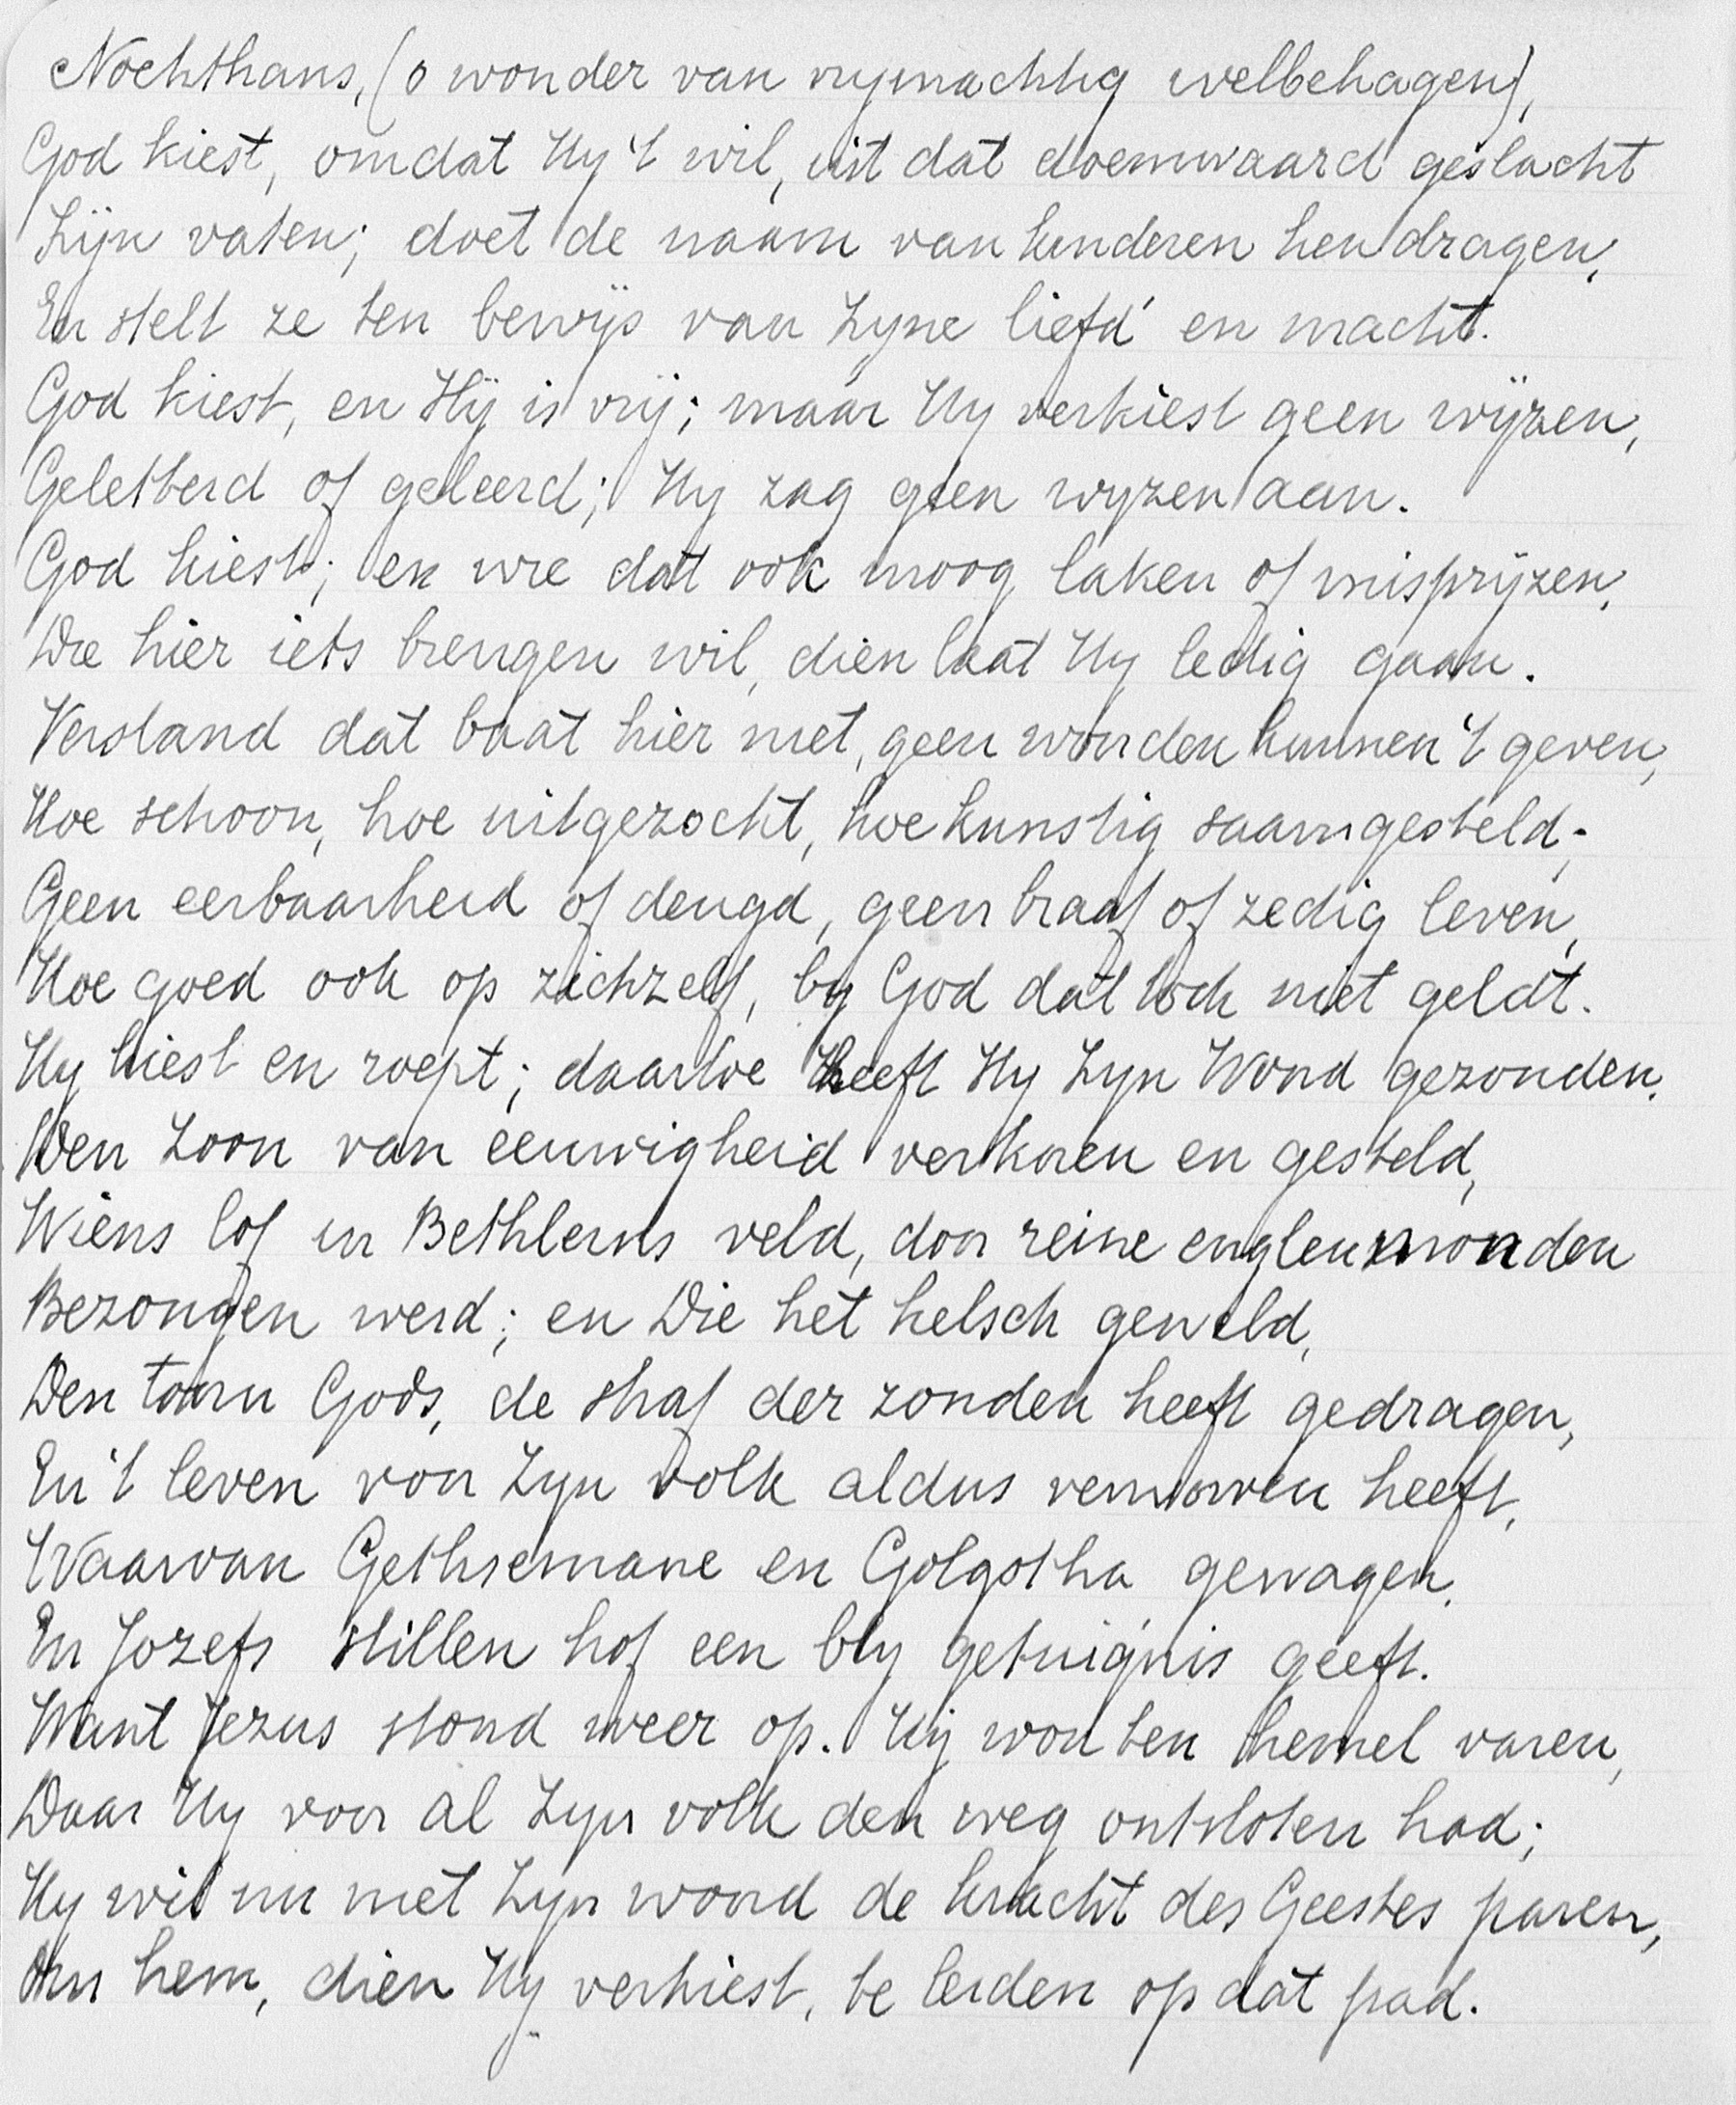 Nochthans, (o wonder van vrymachtig welbehagen),
God kiest, omdat Hy 't wil, uit dat doemwaard geslacht
Zijn vaten; doet de naam van kinderen hen dragen,
En stelt ze ten bewijs van Zyne liefd' en macht.
God kiest, en Hij is vrij; maar Hy verkiest geen wijzen,
Geletterd of geleerd; Hy zag geen wyzen aan.
God kiest; en wie dat ook moog laken of misprijzen,
Die hier iets brengen wil, dien laat Hy ledig gaan.
Verstand dat baat hier niet, geen woorden kunnen 't geven,
Hoe schoon, hoe uitgezocht, hoe kunstig saamgesteld;
Geen eerbaarheid of deugd, geen braaf of zedig leven,
Hoe goed ook op zichzelf, by God dat toch niet geldt.
Hy kiest en roept; daartoe heeft Hy Zyn Woord gezonden.
Den Zoon van eeuwigheid verkoren en gesteld,
Wiens lof in Bethlems veld, door reine englenmonden
Bezongen werd; en Die het helsch geweld,
Den toorn Gods, de straf der zonden heeft gedragen,
En 't leven voor Zyn volk aldus verworven heeft,
Waarvan Gethsemane en Golgotha gewagen,
En Jozefs stillen hof een bly getuignis geeft.
Want Jezus stond weer op. Hij wou ten hemel varen,
Daar Hy voor al Zyn volk den weg ontsloten had;
Hy wil nu met Zyn woord de kracht des Geestes paren,
Om hem, dien Hy verkiest, te leiden op dat pad.